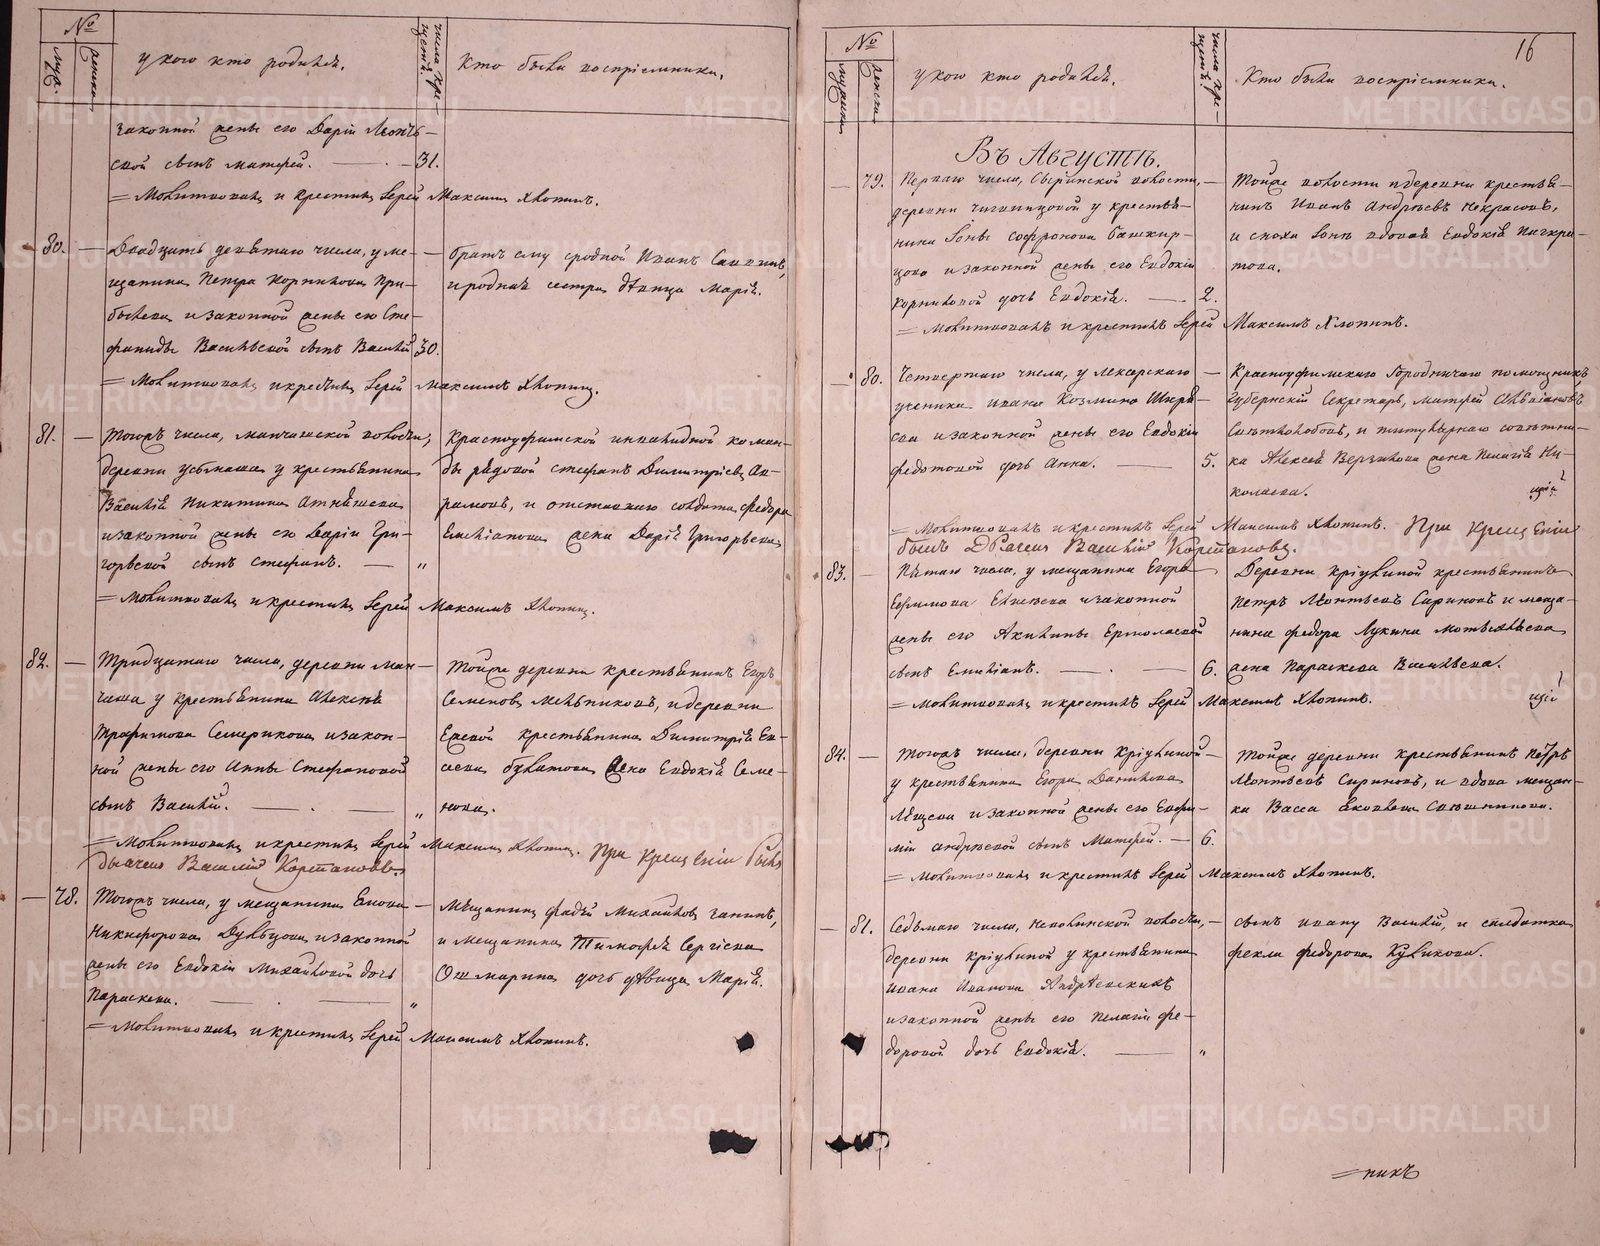 №
муж.
женска.
у кого кто родился.
числа крещенiя.
Кто были воспрiемники.
законной жены его Дарiи Леонть-
ской сынъ матфей. — 31.
= Молитвовалъ и крестилъ Iерей Максимъ Хлопинъ.
80. — Двадцать девятаго числа, у ме-
щанина Петра Корнилова При-
былева и законной жены его Сте-
фаниды Васильевой сынъ Василiй 30.
— братъ ему сродной Иванъ Саввинъ,
и родная сестра дѣвица Марiя.
= Молитвовалъ и крестилъ Iерей Максимъ Хлопинъ.
81. — Тогожъ числа, манчажской волости,
деревни усьмаша у крестьянина
Василiя Никитина Атняшева
и законной жены его Дарiи Гри-
горьевой сынъ Стефанъ. — „
Красноуфимской инвалидной коман-
ды рядовой стефанъ Димитрiевъ Ав-
рамовъ, и отставнаго солдата федора
Емелiанова жена Дарiя Григорьева
= Молитвовалъ и крестилъ Iерей Максимъ Хлопинъ.
82. — Тридцатаго числа, деревни ман-
чажа у крестьянина Алексѣя
Трафимова Семерикова и закон-
ной жены его Анны Стефановой
сынъ Василiй. — „
— Тойже деревни крестьянинъ Егоръ
Семеновъ Мельниковъ, и деревни
крестьянина Димитрiя
жена Евдокiя Семе-
нова.
= Молитвовалъ и крестилъ Iерей Максимъ Хлопинъ. При крещенiи былъ
дьячекъ Василiй Карпановъ
— 78. Тогожъ числа, у мещанина
Никифорова и законной
жены его Евдокiи Михайловой дочь
Параскева. — „
— Мѣщанинъ фадѣй Михайловъ Ганинъ,
и мещанина Тимофея Сергiева
Ошмарина дочь дѣвица Марiя.
= Молитвовалъ и крестилъ Iерей Максимъ Хлопинъ.
16
№
мужска
женска
у кого кто родился.
числа крещенiя.
Кто были воспрiемники.
Въ Августѣ.
— 79. Перваго числа, Сыринской волости,
деревни чигвинцовой у крестья-
нина Iоны Софронова башкир-
цова и законной жены его Евдокiи
Корниловой дочь Евдокiя. — 2.
— Тойже волости и деревни крестья-
нинъ Иванъ Андрѣевъ Некрасовъ,
и сноха Iонѣ вдовая Евдокiя Панкра-
това.
= Молитвовалъ и крестилъ Iерей Максимъ Хлопинъ.
— 80. Четвертаго числа, у лекарскаго
ученика Ивана Козмина
и законной жены его Евдокiи
федотовой дочь Анна. — 5.
— Красноуфимскаго Городничаго помощникъ,
Губернскiй Секретарь, матфей
и титулярнаго совѣтни-
ка Алексѣя Верзилова жена Пелагiя Ни-
колаева.
= Молитвовалъ и крестилъ Iерей Максимъ Хлопинъ. При крещенiи
былъ Дьячекъ Василiй Карпановъ.
83. — Пятаго числа, у мещанина Егора
Ефимова и законной
жены его Акилины Ермолаевой
сынъ Емилiанъ. — 6.
Деревни Крiулиной крестьянинъ
Петръ Леонтьевъ Сариновъ и меща-
нина федора Лукина
жена Параскева Васильева.
= Молитвовалъ и крестилъ Iерей Максимъ Хлопинъ.
84. — Тогожъ числа, деревни Крiулиной
у крестьянина Егора Данилова
и законной жены его Евфи-
мiи андрѣевой сынъ Матфей. — 6.
— Тойже деревни крестьянинъ Петръ
Леонтьевъ Сариновъ, и вдова мещан-
ка Васса Яковлева
= Молитвовалъ и крестилъ Iерей Максимъ Хлопинъ.
— 81. Седьмаго числа, волости,
деревни крiулиной у крестьянина
Ивана Иванова
и законной жены его Пелагiи фе-
доровой дочь Евдокiя. — „
— сынъ ивану Василiй, и солдатка
фекла федорова Куликова.
=никъ